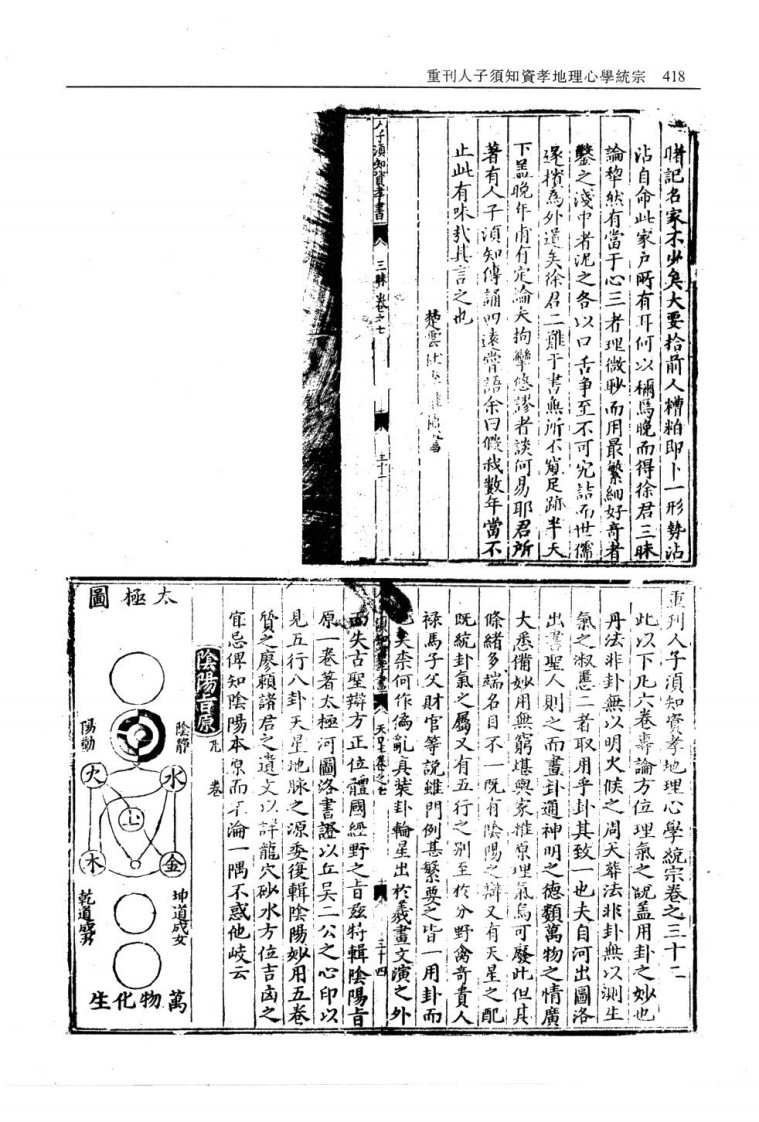 重刊人子須知資孝地理心學統宗 418
人子須知資孝書 三昧 卷之七 三十三
睹記名家不少矣大要拾前人糟粕即卜一形勢沾
沾自命此家戶所有耳何以稱焉晚而得徐君三昧
論犂然有當于心三者理微眇而用最繁細好奇者
鑿之淺中者泥之各以口舌爭至不可究詰而世儒
遂擯為外道矣徐君二難于書無所不窺足跡半天
下蓋晚年甫有定論夫拘攣悠謬者談何易耶君所
著有人子須知傳誦四遠嘗語余曰假我數年當不
止此有味哉其言之也
楚雲
重刊人子須知資孝地理心學統宗卷之三十二
此以下凡六卷專論方位理氣之說蓋用卦之妙也
丹法非卦無以明火候之周天葬法非卦無以測生
氣之淑慝二者取用乎卦其致一也夫自河出圖洛
出書聖人則之而畫卦通神明之德類萬物之情廣
大悉備妙用無窮堪輿家推原理氣烏可廢此但其
條緒多端名目不一既有陰陽之辯又有天星之配
既統卦氣之屬又有五行之別至於分野禽奇貴人
祿馬子父財官等說維門例甚繁要之皆一用卦而
已矣柰何作偽亂真裝卦輪星出於羲畫文演之外
人子須知資孝書 天星卷之七 三十四
而失古聖辯方正位體國經野之旨茲特輯陰陽旨
原一卷著太極河圖洛書證以丘吳二公之心印以
見五行八卦天星地脉之源委復輯陰陽妙用五卷
質之廖賴諸君之遺文以詳龍穴砂水方位吉凶之
宜忌俾知陰陽本原而不淪一隅不惑他岐云
陰陽旨原 凡 卷
太極圖
陰靜
陽動
水
火
土
金
木
坤道成女
乾道成男
萬物化生